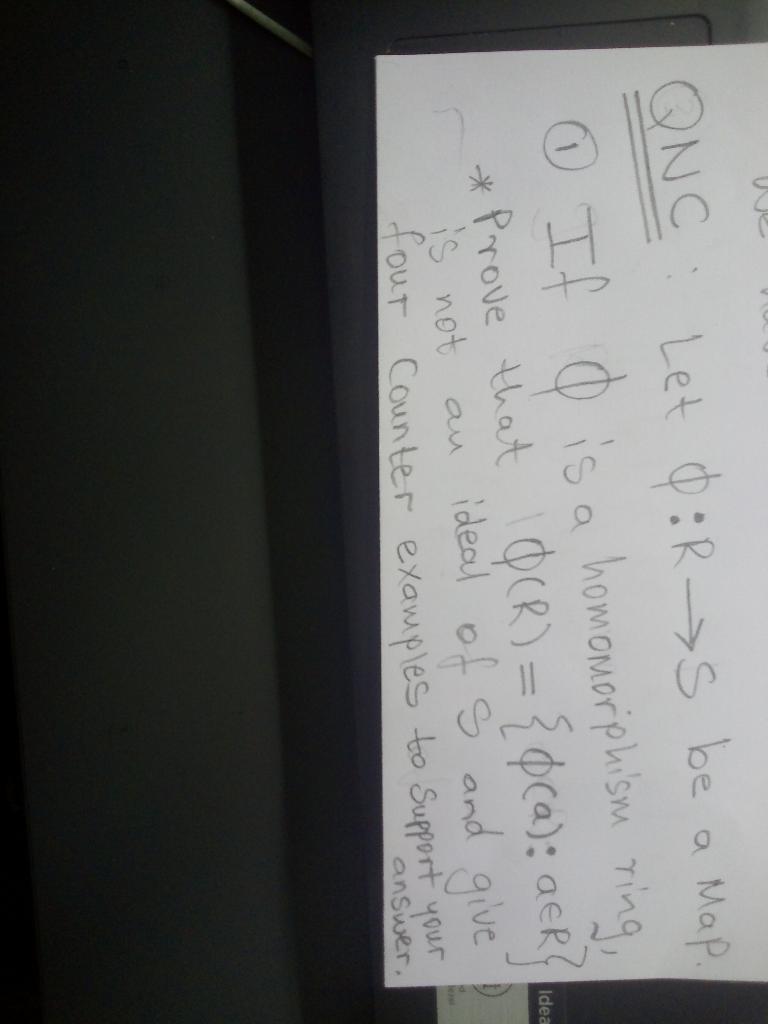 QNC: Let ϕ: R → S be a Map.
① If ϕ is a homomorphism ring,
* Prove that ϕ(R) = {ϕ(a): a∈R}
is not an ideal of S and give
four counter examples to support your
answer.
Idea